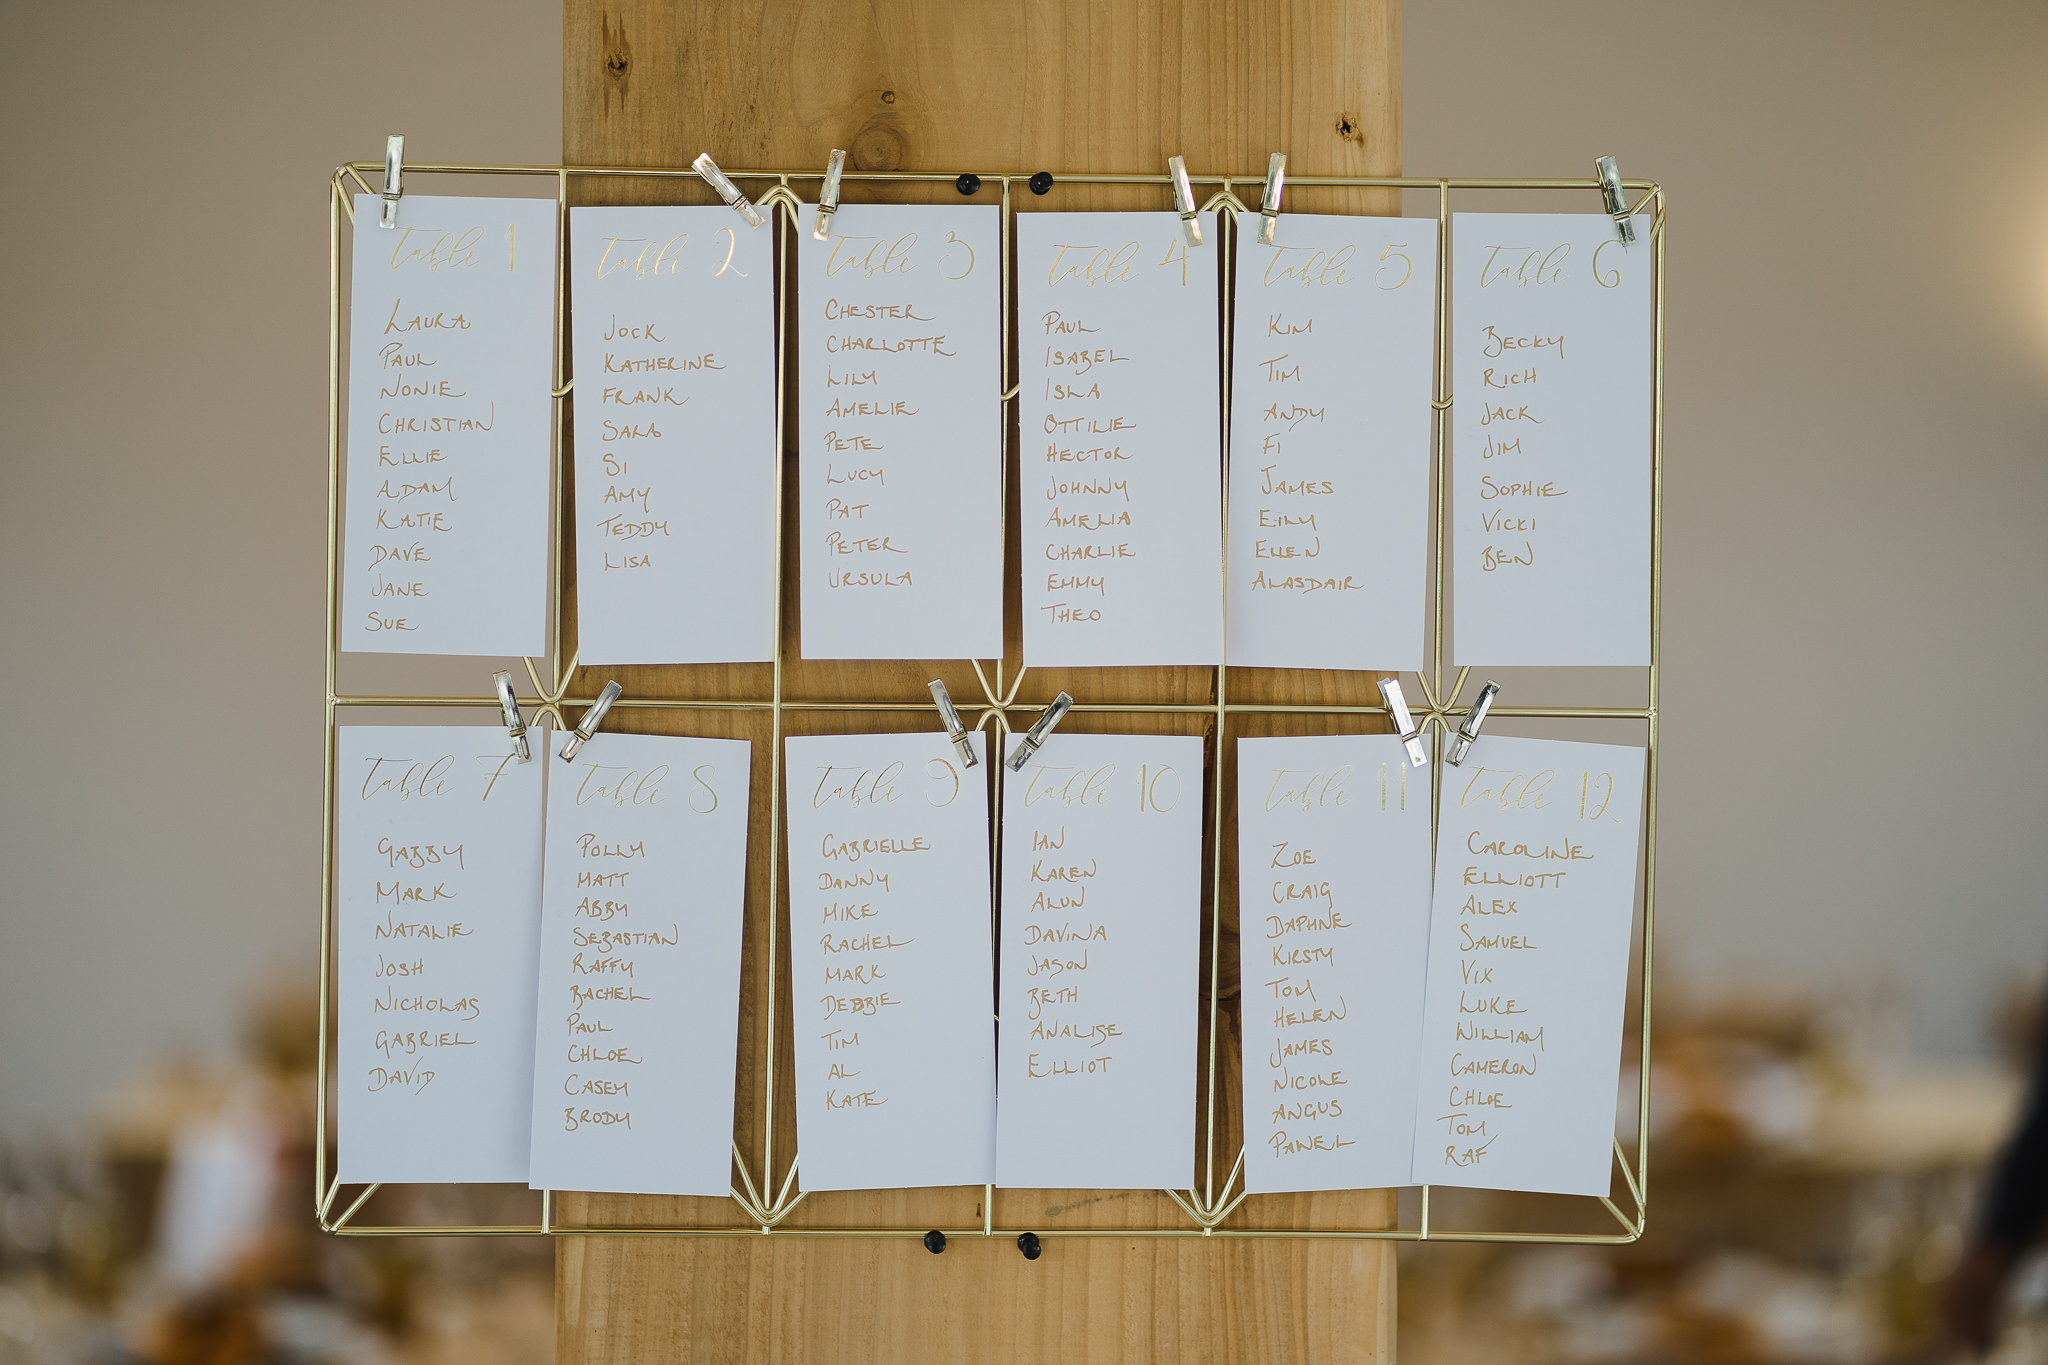 Table 1
LAURA
PAUL
NONIE
CHRISTIAN
ELLIE
ADAM
KATIE
DAVE
JANE
SUE
Table 2
JOCK
KATHERINE
FRANK
SARA
SI
AMY
TEDDY
LISA
Table 3
CHESTER
CHARLOTTE
LILY
AMELIE
PETE
LUCY
PAT
PETER
URSULA
Table 4
PAUL
ISABEL
ISLA
OTTILIE
HECTOR
JOHNNY
AMELIA
CHARLIE
EMMY
THEO
Table 5
KIM
TIM
ANDY
FI
JAMES
EILY
ELLEN
ALASDAIR
Table 6
BECKY
RICH
JACK
JIM
SOPHIE
VICKI
BEN
Table 7
GABBY
MARK
NATALIE
JOSH
NICHOLAS
GABRIEL
DAVID
Table 8
POLLY
MATT
ABBY
SEBASTIAN
RAFFY
RACHEL
PAUL
CHLOE
CASEY
BRODY
Table 9
GABRIELLE
DANNY
MIKE
RACHEL
MARK
DEBBIE
TIM
AL
KATE
Table 10
IAN
KAREN
ALUN
DAVINA
JASON
BETH
ANALISE
ELLIOT
Table 11
ZOE
CRAIG
DAPHNE
KIRSTY
TOM
HELEN
JAMES
NICOLE
ANGUS
PAWEL
Table 12
CAROLINE
ELLIOTT
ALEX
SAMUEL
VIX
LUKE
WILLIAM
CAMERON
CHLOE
TOM
RAF